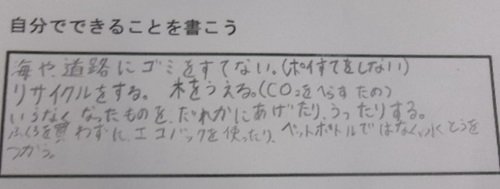 自分でできることを書こう
海や道路にゴミをすてない。(ポイすてをしない)
リサイクルをする。木をうえる。(CO2をへらすため)
いらなくなったものを、だれかにあげたり、うったりする。
ふくろを買わずに、エコバックを使ったり、ペットボトルではなく、水とうを
つかう。